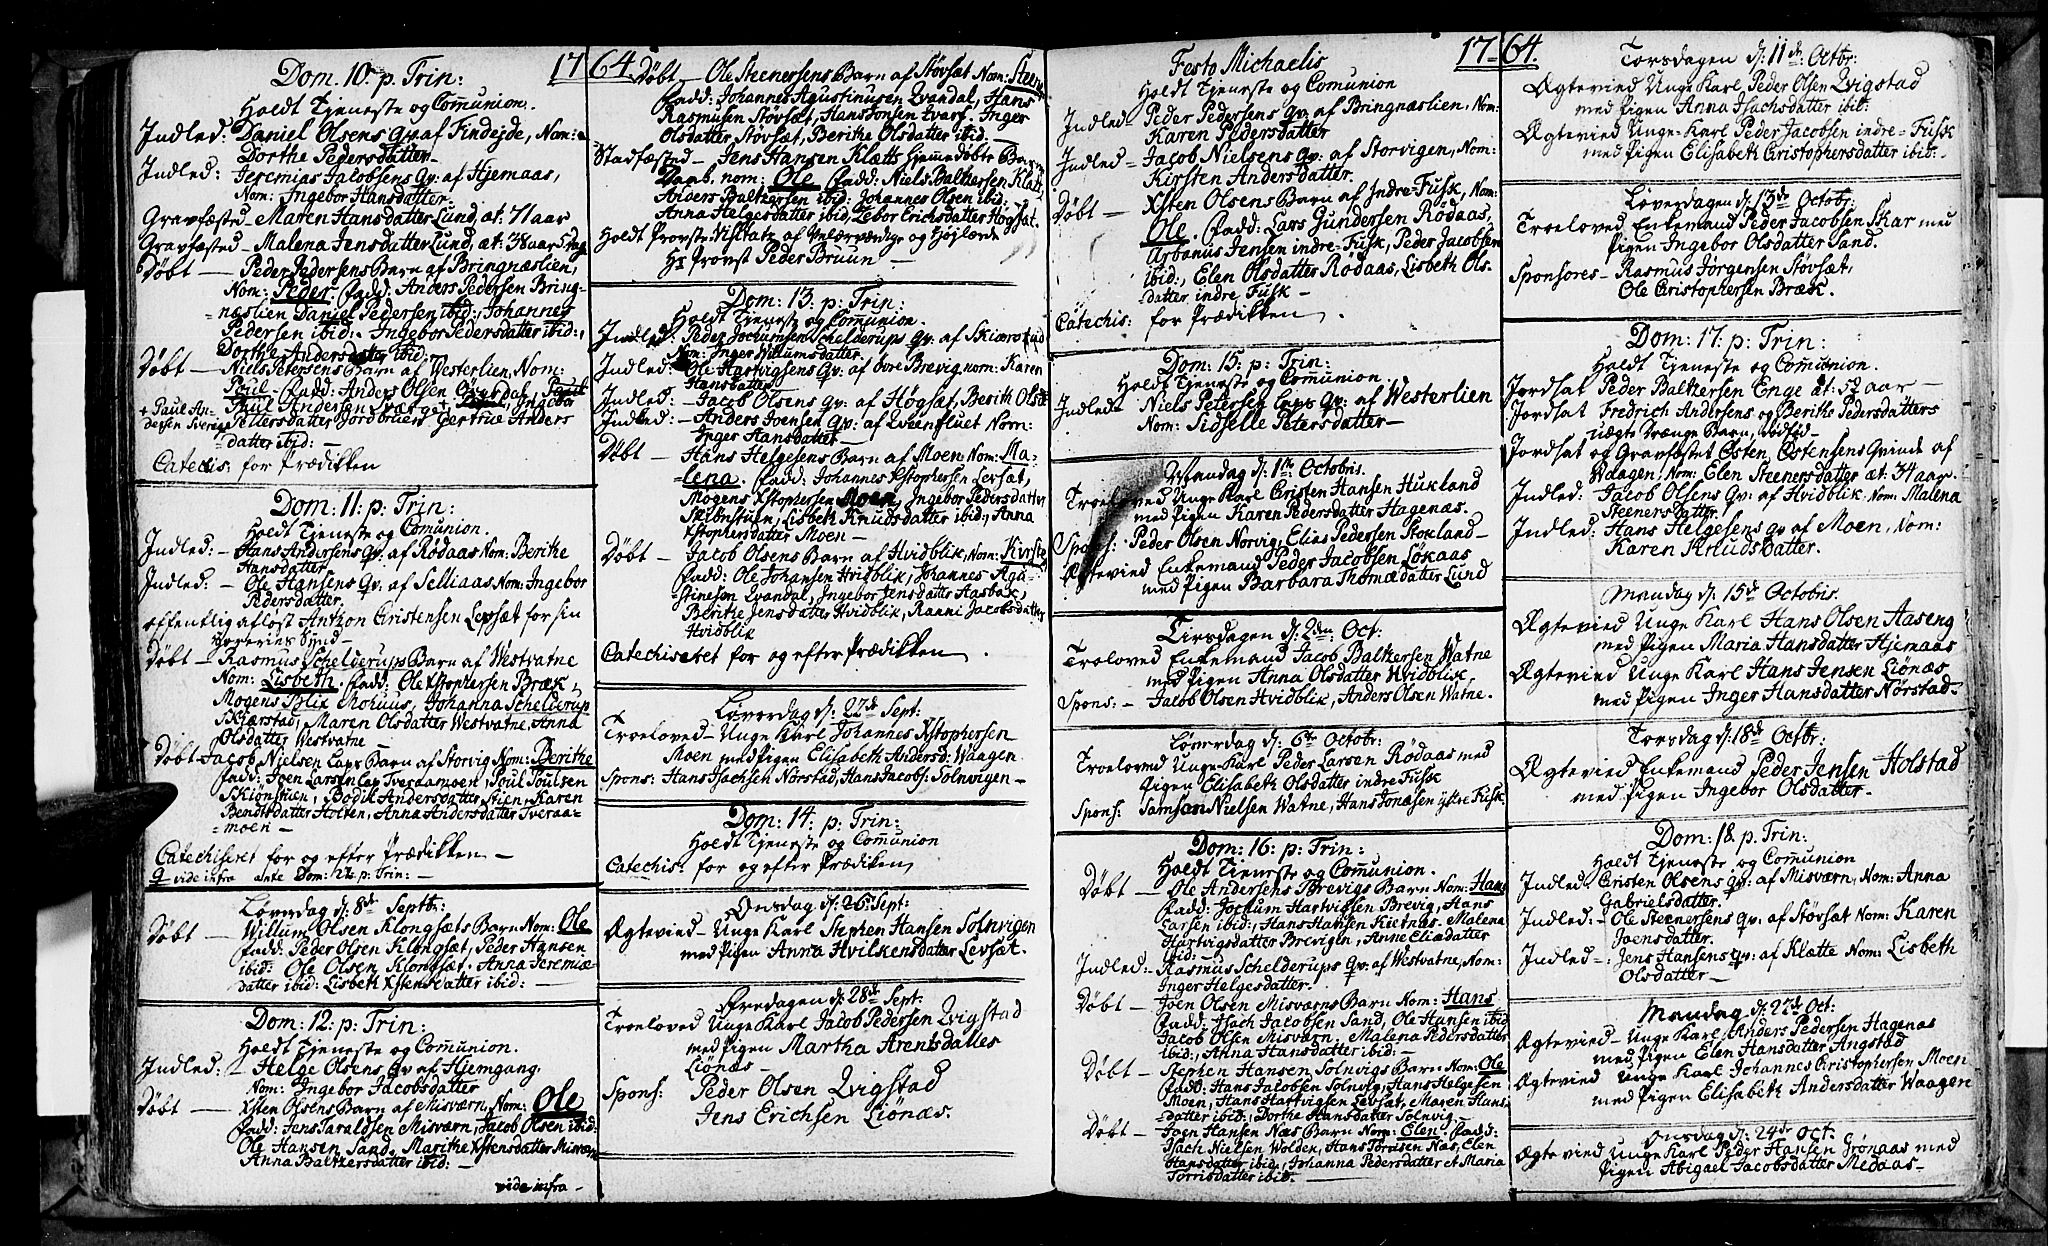 1764
Dom: 10: p: Trin:
Holdt Tjeneste og Comunion.
Indled: Daniel Olsens Qv: af Findejde, Nom:
Dorthe Pedersdatter
Indled: Jeremias Jacobsens Qv: af Hjemaas,
Nom: Ingebor Hansdatter.
Gravfæsted Maren Hansdatter Lund, æt: 71 aar
Gravfæsted Malena Jensdatter Lund, æt: 38 aar 5 Dag
Døbt Peder Pedersens Barn af Bringnæslien,
Nom: Peder. Fadd: Anders Pedersen Bring=
=næslien Daniel Pedersen ibid:, Johannes
Pedersen ibid: Ingebor Pedersdatter ibid:,
Dorthe Andersdatter ibid:
Døbt Niels Petersens Barn af Westerlien, Nom:
Poul Fadd: Anders Olsen
+ Paul An= Paul Andersen
dersen Sverige Pedersdatter Gertrue Anders
datter ibid: -
Catechis: for Prædikken
Dom: 11: p: Trin:
Holdt Tjeneste og Comunion.
Indled: Hans Andersens Qv: af Rødaas Nom: Berithe
Hansdatter.
Indled: Ole Hansens Qv: af Selliaas Nom: Ingebor
Pedersdatter.
offentlig afløst Anthon Cristensen Levset for sin
Synd
Døbt Rasmus Schelderups Barn af Westvatne
Nom: Lisbeth. Fadd: Ole Xstophersen Bræk,
Mogens Blix Mohuus, Johanna Schelderup
Skjærstad, Maren Olsdatter Westvatne, Anna
Olsdatter Westvatne
Døbt Jacob Nielsen Laps Barn af Storvig Nom: Berithe
Fadd: Joen Larsen Lap Tveraamoen, Poul Poulsen
Skiønstuen, Bodil Andersdatter Stien, Karen
Bendtsdatter Holten, Anna Andersdatter Tveraa=
=moen -
Catechiseret for og efter Prædikken -
vide infra ante Dom: 21 p: Trin: -
Løverdag d: 8de Septbr:
Døbt Willum Olsens Klongsæts Barn Nom: Ole
Fadd: Peder Olsen Klongsæt, Peder Hansen
ibid: Ole Olsen Klongsæt. Anna Jeremiæ
datter ibid: Lisbeth Xstensdatter ibid: -
Dom: 12: p: Trin:
Holdt Tjeneste og Comunion.
Indled: Helge Olsens Qv: af Hjemgang:
Nom: Ingebor Jacobsdatter
Døbt Xsten Olsens Barn af Misværn, Nom: Ole
Fadd: Jens Misværn, Jacob Olsen ibid:
Ole Hansen Sand, Marithe Xstensdatter Misværn
Anna Baltzersdatter ibid: -
vide infra -
Døbt - Ole Steenersens Barn af Støvset Nom: Steener
Fadd: Johannes Agustinusen Qvandal, Hans
Rasmusen Støvset, Hans Jonsen Evarf. Inger
Olsdatter Støvset, Berithe Olsdatter ibid -
Stadfæsted - Jens Hansen Klætts hjemmedøbte Barn
Daab. nom: Ole Fadd: Niels Baltzersen Klæt
Anders Baltzersen ibid: Johannes Olsen ibid:
Anna Helgesdatter ibid, Zebor Erichsdatter Høgset.
Holdt Provste-Visitatz af Velærværdige og Højlærde
Hr Provst Peder Bruun -
Dom: 13: p: Trin:
Holdt Tjeneste og Comunion.
Indled: Peder Jochumsen Schelderups Qv: af Skiærstad
Nom: Inger Willumsdatter.
Indled: Ole Hartvigsens Qv: af øvre Brevig nom: Karen
Hansdatter
Indled: Jacob Olsens Qv: af Høgset, Berith Olsd:
Indled: Anders Joensen Qv: af Qvænfluet Nom:
Inger Hansdatter -
Døbt - Hans Helgesens Barn af Moen Nom: Ma=
=lena. Fadd: Johannes Xstophersen Levset,
Mogens Xstophersen Moen, Ingebor Pedersdatter
Skiønstuen, Lisbeth Knudsdatter ibid:, Anna
Xstophersdatter Moen -
Døbt - Jacob Olsens Barn af Hvidblik, Nom: Kirste
Fadd: Ole Johansen Hvidblik, Johannes Agu=
=stinesen Qvandal, Ingebor Jensdatter Aasbak,
Berithe Jensdatter Hvidblik, Ranni Jacobsdatter
Hvidblik
Catechiseret for og efter Prædikken
Løverdag d: 22de Sept:
Troeloved - Unge Karl Johannes Xstophersen
Moen med Pigen Elisabeth Andersd: Waagen
Spons: Hans Isachsen Nørstad, Hans Jacobs: Solnvigen -
Dom: 14: p: Trin:
Holdt Tjeneste og Comunion
Catechis: for og efter Prædiken,
Onsdag d: 26 Sept:
Ægtevied - Unge Karl Stephen Hansen Solnvigen
med Pigen Anna Hvilkensdatter Levset.
Fredagen d: 28de Sept:
Troeloved Unge Karl Jacob Pedersen Qvigstad
med Pigen Martha Arentsdatter
Liønæs -
Spons: Peder Olsen Qvigstad
Jens Erichsen Liønæs.
1764.
Festo Michaelis
Holdt Tjeneste og Comunion
Indled: Peder Pedersens Qv: af Bringnæslien, Nom:
Karen Pedersdatter
Indled = Jacob Nielsens Qv: af Storvigen, Nom:
Kirsten Andersdatter.
Døbt Xsten Olsens Barn af Indre=Fusk, Nom:
Ole. Fadd: Lars Gundersen Rødaas,
Arbanus Jensen indre=Fusk, Peder Jacobsen
ibid:, Elen Olsdatter Rødaas, Lisbeth Ols=
datter indre Fusk -
Catechis: for Prædikken
Dom: 15: p: Trin:
Holdt Tjeneste og Comunion
Indled Niels Petersen Laps Qv: af Westerlien
Nom: Sidselle Petersdatter -
Mandag d: 1te Octobris.
Troeloved Unge Karl Cristen Hansen Hukland
med Pigen Karen Pedersdatter Hagenæs.
Spons: Peder Olsen Norvig, Elias Pedersen Stokland
Ægtevied Enkemand Peder Jacobsen Løkaas
med Pigen Barbara Thomædatter Lund
Tirsdagen d: 2den Oct:
Troeloved Enkemand Jacob Baltzersen Watne
med Pigen Anna Olsdatter Hvidblik,
Spons: - Jacob Olsen Hvidblik, Anders Olsen Watne.
Løverdag d: 6te Octobr:
Troeloved Unge Karl Peder Larsen Rødaas med
Pigen Elisabeth Olsdatter indre Fusk
Spons: Samson Nielsen Watne, Hans Jonæsen ÿttre Fusk.
Dom: 16: p: Trin:
Holdt Tjeneste og Comunion.
Døbt - Ole Andersens Brevigs Barn Nom: Hans
Fadd: Jochum Hartvigsen Brevig, Hans
Larsen ibid:, Hans Hansen Kietnæs. Malena
Hartvigsdatter Brevigen, Anne Eliædatter
ibid: -
Indled: Rasmus Schelderups Qv: af Westvatne, Nom:
Inger Helgesdatter.
Døbt - Joen Olsen Misværns Barn Nom: Hans
Fadd: Isach Jacobsen Sand, Ole Hansen ibid
Jacob Olsen Misværn, Malena Pedersdatter
ibid:, Anna Hansdatter ibid: -
Døbt - Stephen Hansen Solnvigs Barn Nom: Ole
Fadd: Hans Jacobsen Solnvig, Hans Helgesen
Moen, Hans Hartvigsen Levset, Maren Hans=
datter ibid:, Dorthe Hansdatter Solnvig -
Døbt - Joen Hansen Næs Barn Nom: Elen. Fadd:
Isach Nielsen Wolden, Hans Torrisen Næs, Elen
Hansdatter ibid, Johanna Pedersdatter et Maria
Torrisdatter ibid: -
Torsdagen d: 11te Octbr:
Ægtevied Unge Karl Peder Olsen Qvigstad
med Pigen Anna Isachsdatter ibid:
Ægtevied Unge=Karl Peder Jacobsen indre=Fusk
med Pigen Elisabeth Cristophersdatter ibid: -
Løverdagen d: 13de Octobr:
Troeloved Enkemand Peder Jacobsen Skar med
Pigen Ingebor Olsdatter Sand.
Sponsores - Rasmus Jørgensen Støvset,
Ole Cristophersen Bræk.
Dom: 17: p: Trin:
Holdt Tjeneste og Comunion.
Jordsat Peder Baltzersen Enge æt: 52 aar -
Jordsat Fredrich Andersens og Beriths Pedersdatters
uægte Drænge Barn, dødfød -
Jordsat og Gravfæstet Osten Ostensens Qvinde af
Waagen, Nom: Elen Steenersdatter æt: 34 aar.
Indled: Jacob Olsens Qv: af Hvidblik Nom: Malena
Steenersdatter.
Indled: Hans Helgesens Qv: af Moen, Nom:
Karen Knudsdatter.
Mandag d: 15de Octobris.
Ægtevied Unge Karl Hans Olsen Aaseng
med Pigen Maria Hansdatter Hjemaas
Ægtevied Unge Karl Hans Jensen Liønæs
med Pigen Inger Hansdatter Nørstad.
Torsdag d: 18de Octbr:
Ægtevied Enkemand Peder Jensen Holstad
med Pigen Ingebor Olsdatter.
Dom: 18. p: Trin:
Holdt Tjeneste og Comunion
Indled: Cristen Olsens Qv: af Misværn, Nom: Anna
Gabrielsdatter.
Indled: - Ole Steenersens Qv: af Støvset Nom: Karen
Joensdatter.
Indled -: Jens Hansens Qv: af Klætte Nom: Lisbeth
Olsdatter -
Mandag d: 22de Oct:
Ægtevied - Unge Karl Anders Pedersen Hagenæs
med Pigen Elen Hansdatter Angstad
Ægtevied Unge Karl Johannes Cristophersen Moen
med Pigen Elisabeth Andersdatter Waagen
Onsdag d: 24de Oct:
Ægtevied Unge Karl Peder Hansen Grønaas med
Pigen Abigael Jacobsdatter Medaas -